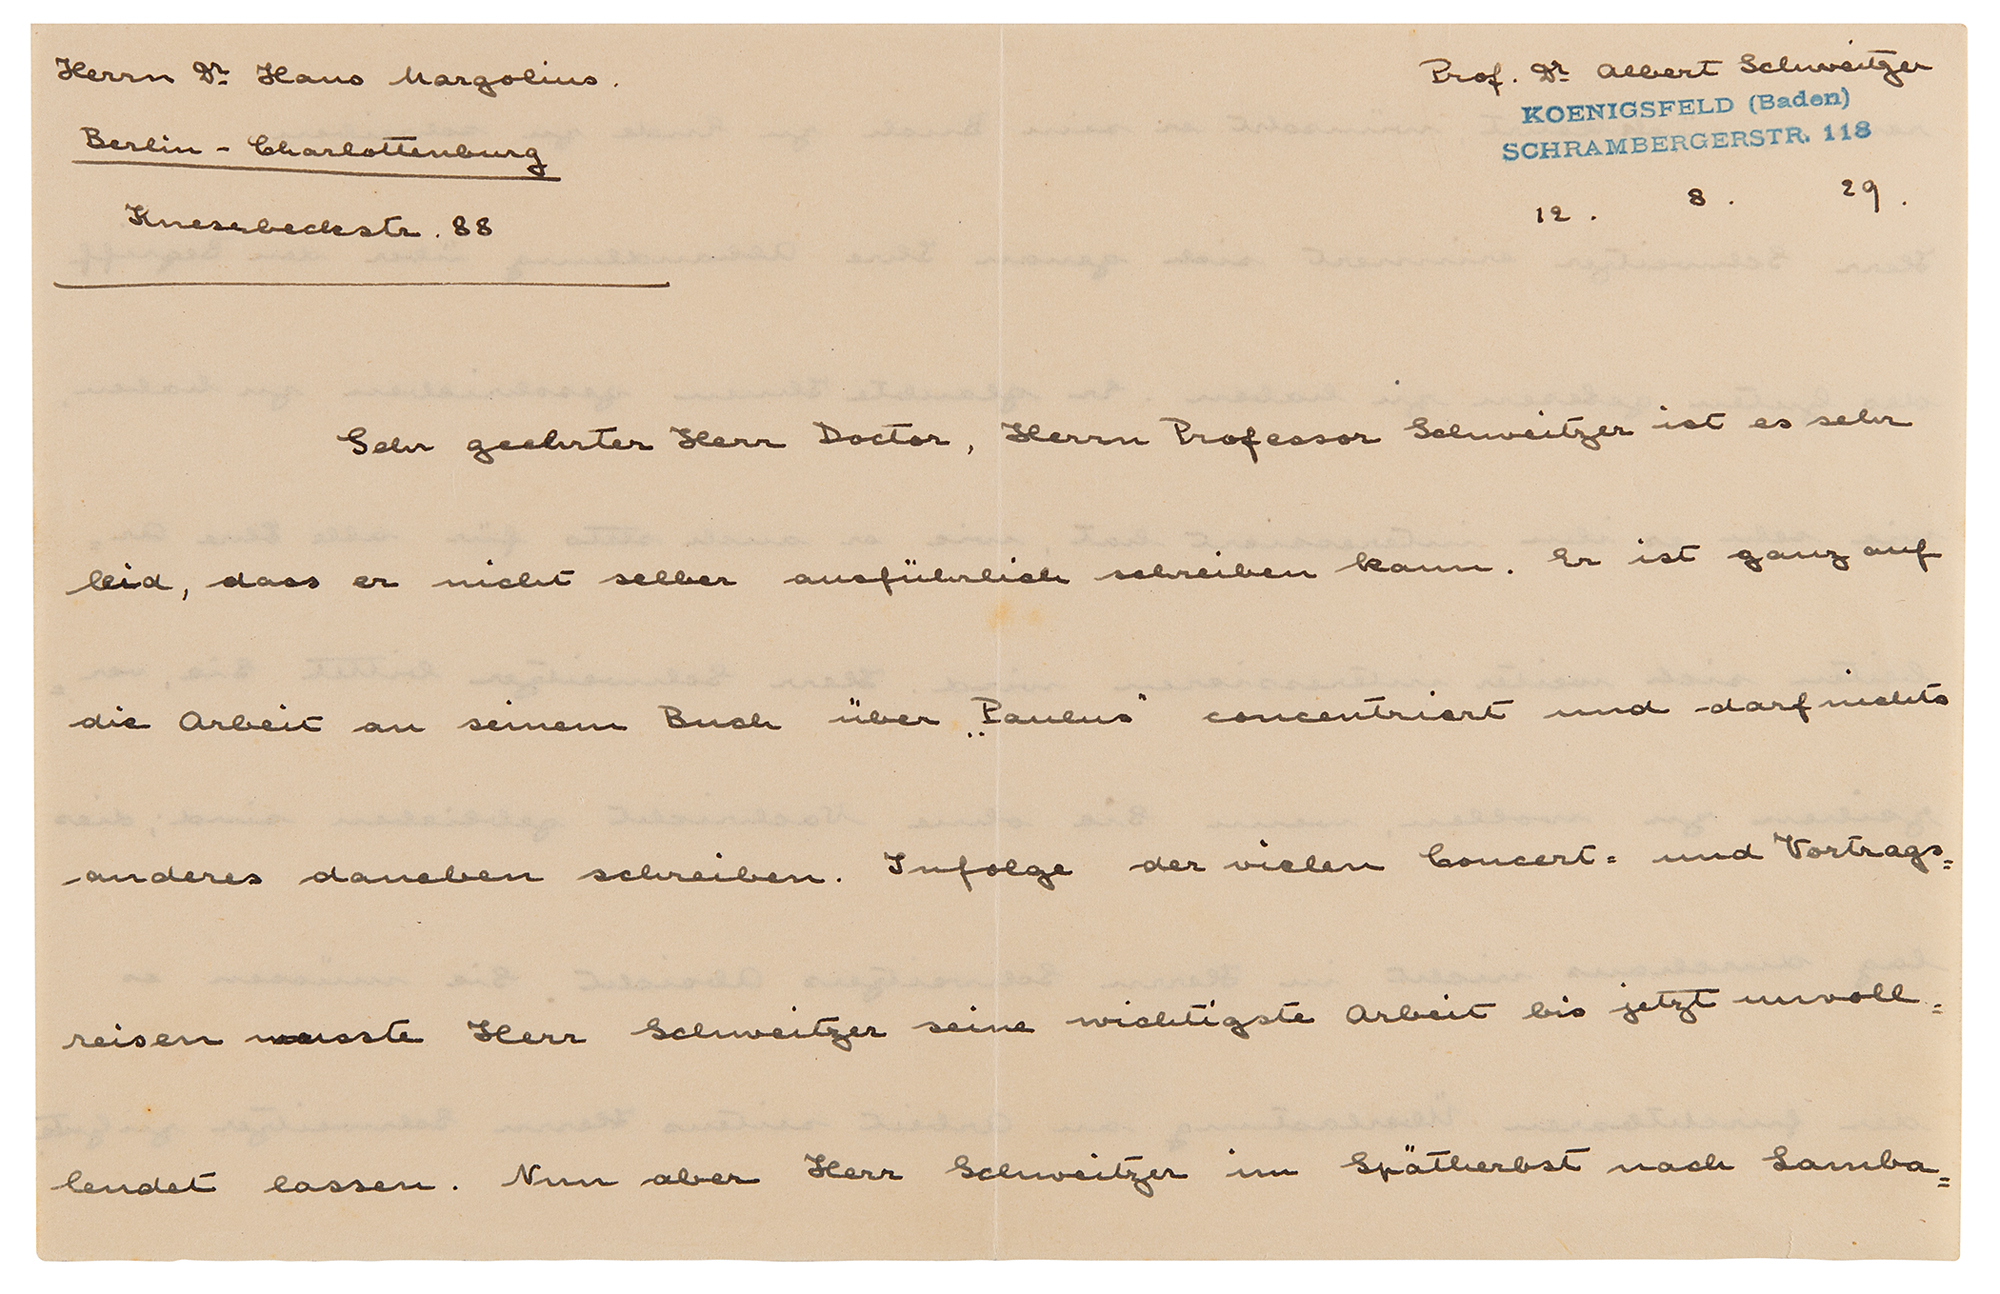 Herrn Dr Hans Margolius.
Prof. Dr Albert Schweitzer
KOENIGSFELD (Baden)
SCHRAMBERGERSTR. 118
Berlin - Charlottenburg
Knesebeckstr. 88
12. 8. 29.
Sehr geehrter Herr Doctor, Herrn Professor Schweitzer ist es sehr
leid, dass er nicht selber ausführlich schreiben kann. Er ist ganz auf
die Arbeit an seinem Buch über „Paulus" concentriert und darf nichts
anderes daneben schreiben. Infolge der vielen Concert= und Vortrags=
reisen musste Herr Schweitzer seine wichtigste Arbeit bis jetzt unvoll=
lendet lassen. Nun aber Herr Schweitzer im Spätherbst nach Lamba=